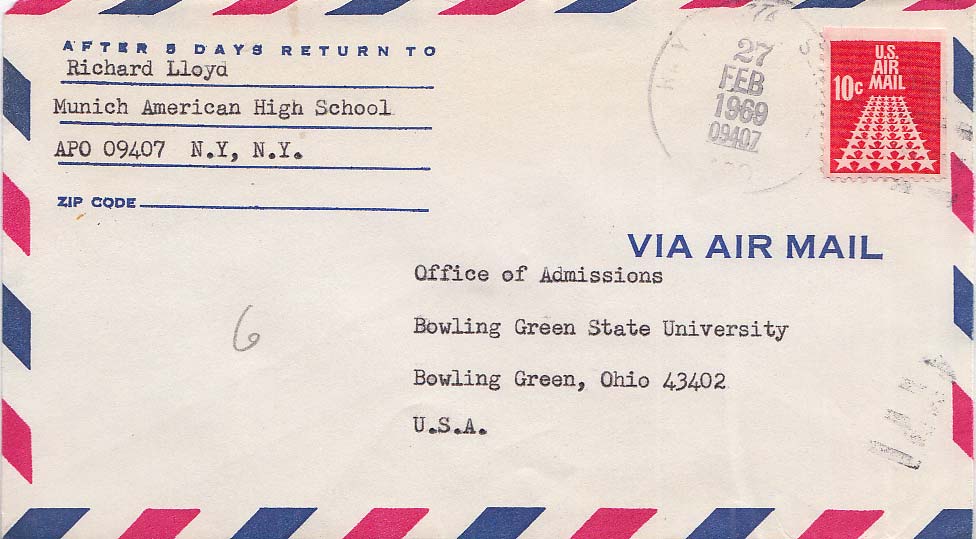 AFTER 5 DAYS RETURN TO
Richard Lloyd
Munich American High School
APO 09407 N.Y, N.Y.
ZIP CODE
27
FEB
1969
09407
U.S.
AIR
MAIL
10c
VIA AIR MAIL
Office of Admissions
Bowling Green State University
Bowling Green, Ohio 43402
U.S.A.
6